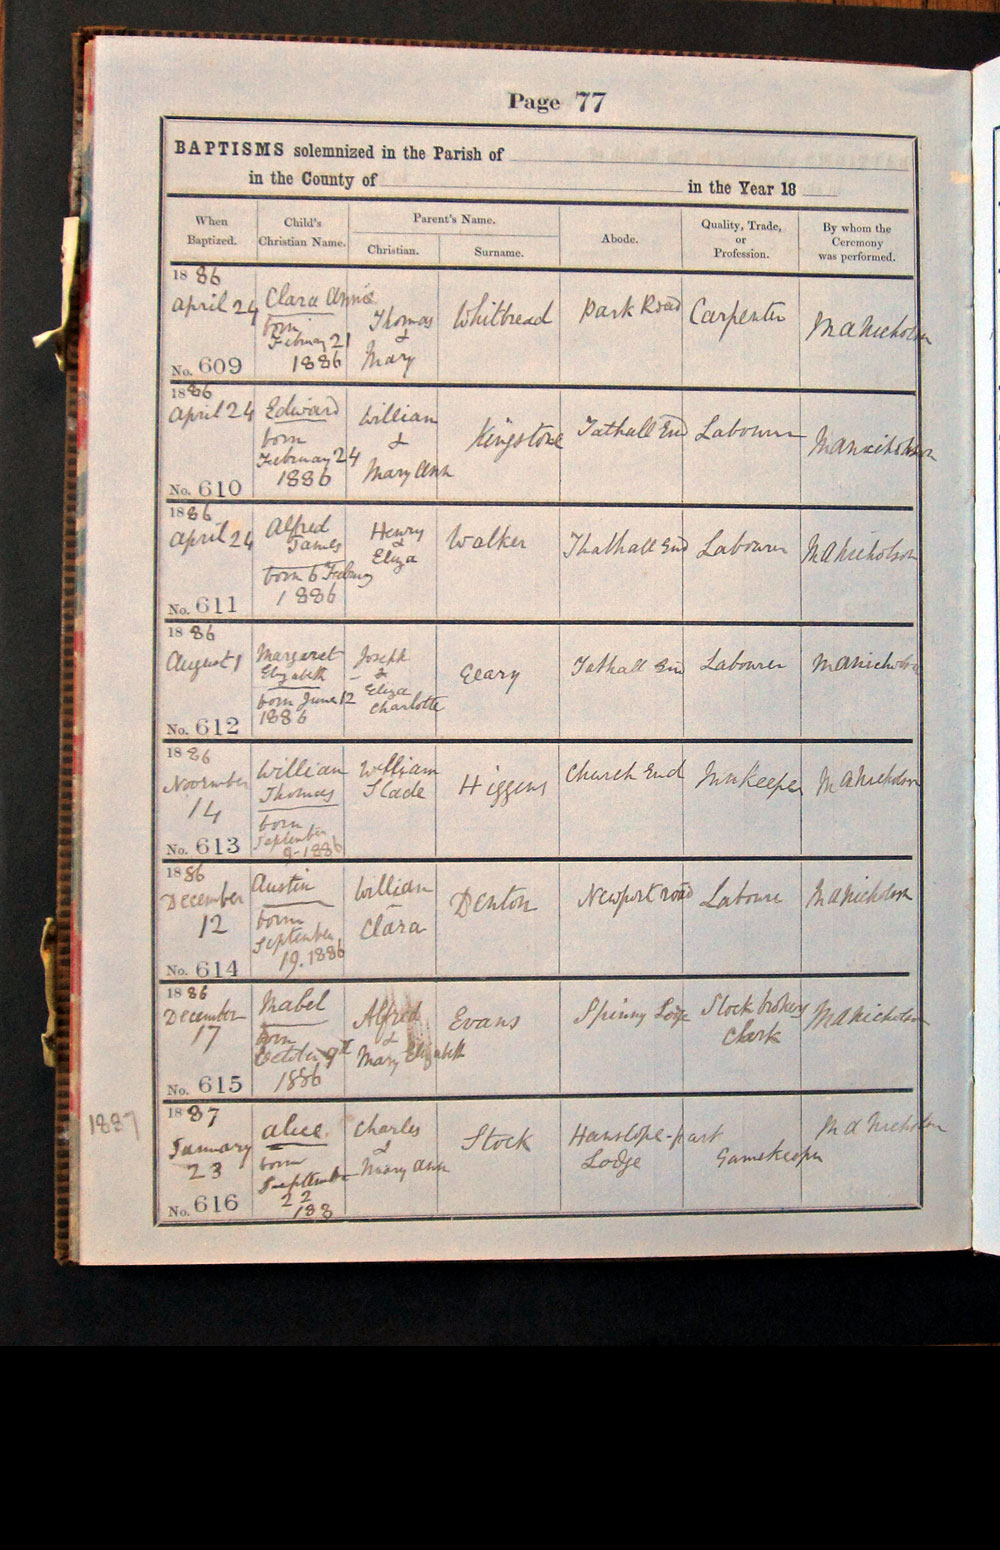 Page 77
BAPTISMS solemnized in the Parish of
in the County of in the Year 18
When Baptized. Child's Christian Name. Parent's Name. Christian. Surname. Abode. Quality, Trade, or Profession. By whom the Ceremony was performed.
1886
April 24
No. 609
Clara Annie
born
February 21
1886
Thomas
&
Mary
Whitbread
Park Road
Carpenter
M A Nicholson
1886
April 24
No. 610
Edward
born
February 24
1886
William
&
Mary Ann
Kingstone
Tathall End
Labourer
M A Nicholson
1886
April 24
No. 611
Alfred
James
born 6 February
1886
Henry
&
Eliza
Walker
Thathall End
Labourer
M A Nicholson
1886
August 1
No. 612
Margaret
Elizabeth
born June 12
1886
Joseph
&
Eliza
Charlotte
Geary
Tathall End
Labourer
M A Nicholson
1886
November
14
No. 613
William
Thomas
born
September
9-1886
William
Slade
Higgens
Church End
Innkeeper
M A Nicholson
1886
December
12
No. 614
Austin
born
September
19. 1886
William
Clara
Denton
Newport road
Labourer
M A Nicholson
1886
December
17
No. 615
Mabel
born
October 9th
1886
Alfred
&
Mary Elizabeth
Evans
Spinny Lodge
Stock brokers
Clark
M A Nicholson
1887
1887
January
23
No. 616
Alice
born
September
22
188
Charles
&
Mary Ann
Stock
Hanslope-part
Lodge
Gamekeeper
M A Nicholson